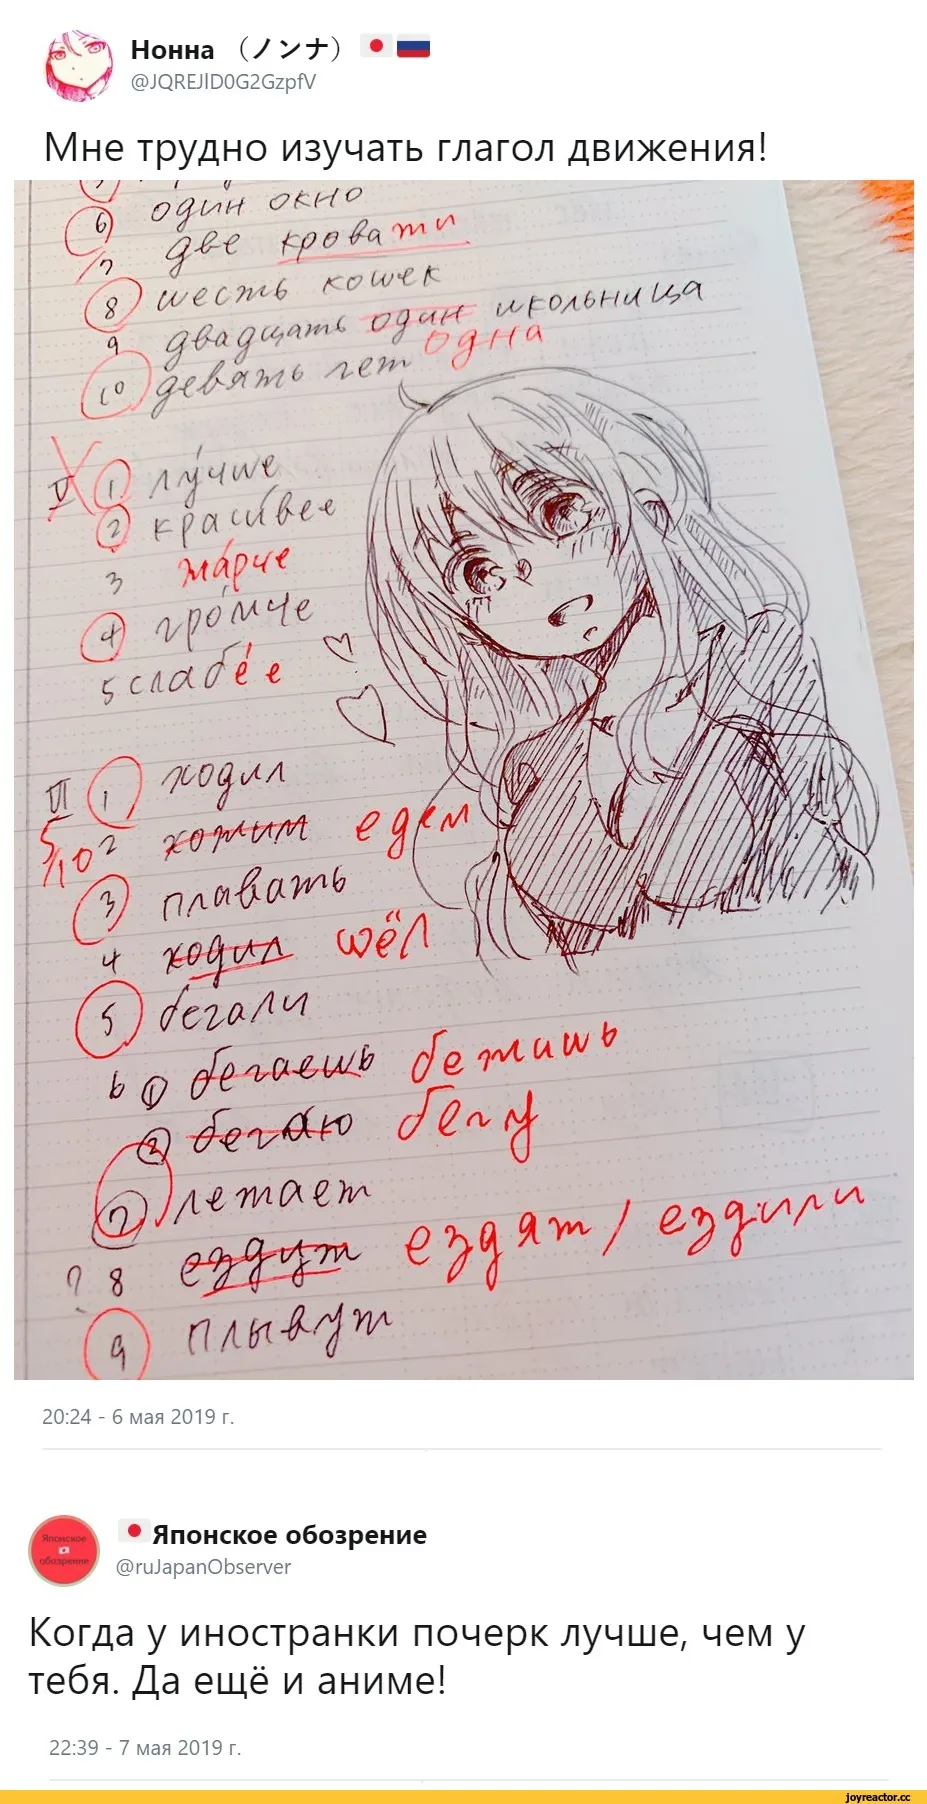 Нонна (ノンナ)
@JQREJlD0G2GzpfV
Мне трудно изучать глагол движения!
6 один окно
7 две кровати
8 шесть кошек
9 двадцать один школьница
одна
10 девять лет
V 1 лу́чше
2 краси́вее
3 жа́рче
4 гро́мче
5 слабе́е
VI 1 ходил
5/10 2 хожим едем
3 плавать
4 ходил шёл
5 бегали
6 ① бегаешь бежишь
② бегаю бегу
7 летает
? 8 ездут ездят / ездили
9 плывут
20:24 - 6 мая 2019 г.
Японское обозрение
Японское обозрение
@ruJapanObserver
Когда у иностранки почерк лучше, чем у
тебя. Да ещё и аниме!
22:39 - 7 мая 2019 г.
joyreactor.cc